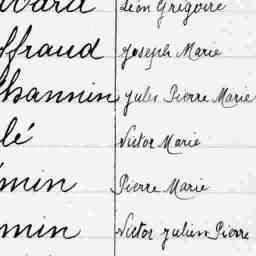 Léon Grégoire
ffraud Joseph Marie
channin Jules Pierre Marie
lé Victor Marie
min Pierre Marie
min Victor Julien Pierre